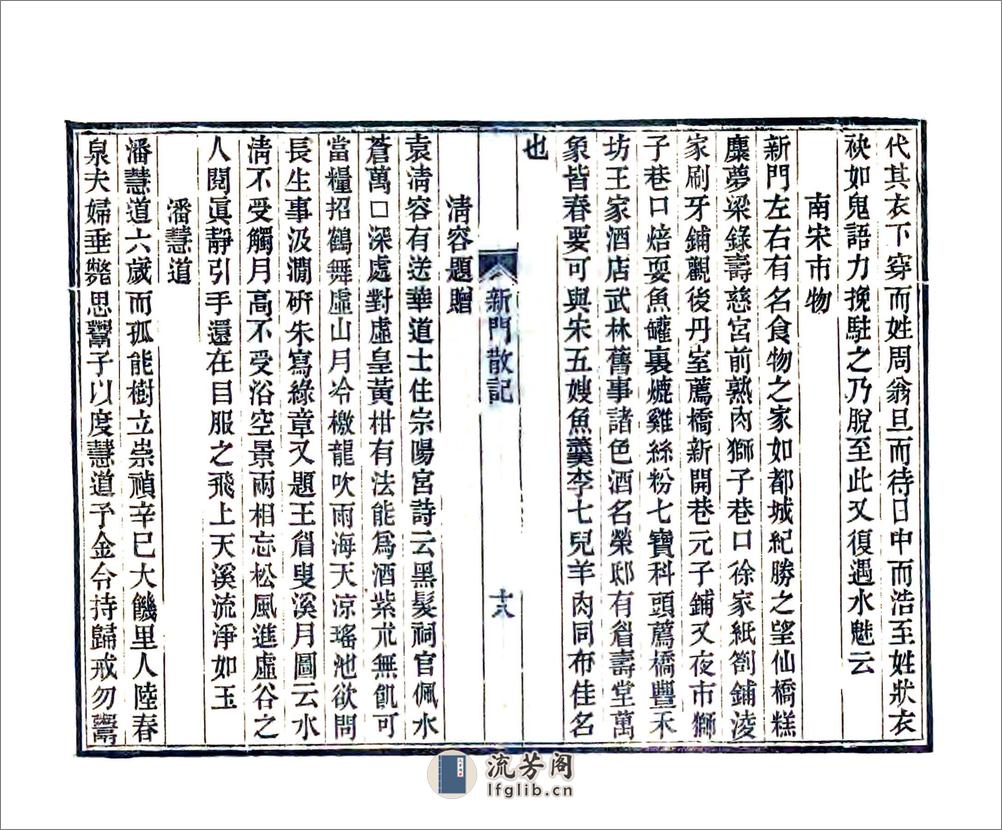 代其衣下穿而姓周翁旦而待日中而浩至姓狀衣
袂如鬼語力挽駐之乃脫至此又復遇水魅云
南宋市物
新門左右有名食物之家如都城紀勝之望仙橋糕
麋夢梁錄壽慈宮前熟肉獅子巷口徐家紙劄鋪淩
家刷牙鋪觀後丹室薦橋新開巷元子鋪又夜市獅
子巷口焙耍魚罐裏爊雞絲粉七寶科頭薦橋豐禾
坊王家酒店武林舊事諸色酒名榮邸有眉壽堂萬
象皆春要可與宋五嫂魚羹李七兒羊肉同布佳名
也
新門散記
十八
淸容題贈
袁淸容有送華道士住宗陽宮詩云黑髮祠官佩水
蒼萬□深處對虛皇黃柑有法能爲酒紫朮無飢可
當糧招鶴舞虛山月冷檄龍吹雨海天涼瑤池欲問
長生事汲澗硏朱寫綠章又題王眉叟溪月圖云水
淸不受觸月高不受浴空景兩相忘松風進虛谷之
人閱眞靜引手還在目服之飛上天溪流淨如玉
潘慧道
潘慧道六歲而孤能樹立崇禎辛巳大饑里人陸春
泉夫婦垂斃思鬻子以度慧道予金令持歸戒勿鬻
流芳阁
lfglib.cn